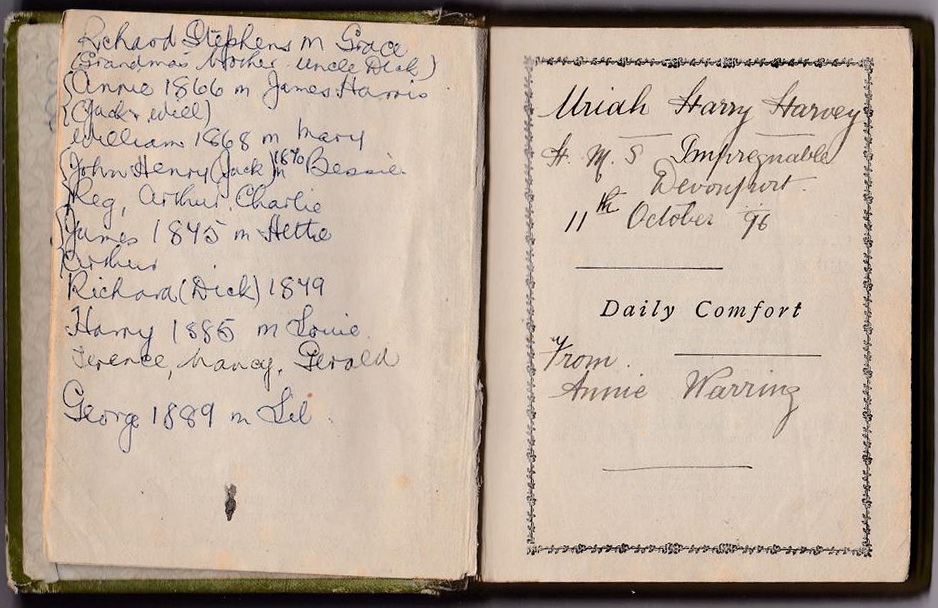 Richard Stephens m Grace
(Grandma's brother Uncle Dick)
(Annie 1866 m James Harris
(Jack & Will)
William 1868 m Mary
(John Henry (Jack) 1870 m Bessie
Reg, Arthur, Charlie
James 1845 m Hettie
Arthur
Richard (Dick) 1849
Harry 1885 m Louie
Terence, Nancy, Gerald
George 1889 m Lil
Uriah Harry Harvey
H. M. S Impregnable
Devonport.
11th October 96
Daily Comfort
From
Annie Warring